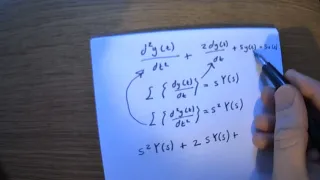 d²y(t)/dt² + 2dy(t)/dt + 5y(t) =
L{dy(t)/dt} = sY(s)
L{d²y(t)/dt²} = s²Y(s)
s²Y(s) + 2sY(s) +